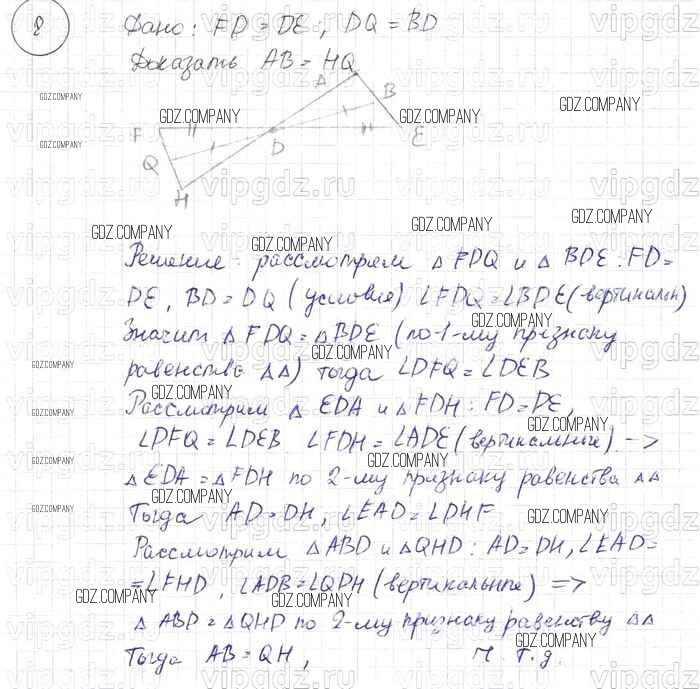 8
Дано: FD = DE; DQ = BD
Доказать AB = HQ
A
B
F
D
E
Q
H
Решение: рассмотрим △ FDQ и △ BDE: FD=
DE, BD=DQ (условия) ∠FDQ=∠BDE (вертикальн)
Значит △ FDQ=△BDE (по 1-му признаку
равенства △△) тогда ∠DFQ=∠DEB
Рассмотрим △ EDA и △FDH: FD=DE,
∠DFQ=∠DEB ∠FDH=∠ADE (вертикальные) ->
△EDA=△FDH по 2-му признаку равенства △△
Тогда AD=DH, ∠EAD=∠DHF
Рассмотрим △ABD и △QHD: AD=DH, ∠EAD=
=∠FHD, ∠ADB=∠QDH (вертикальные) =>
△ ABD=△QHD по 2-му признаку равенству △△
Тогда AB=QH, ч.т.д.
GDZ.COMPANY
vipgdz.ru